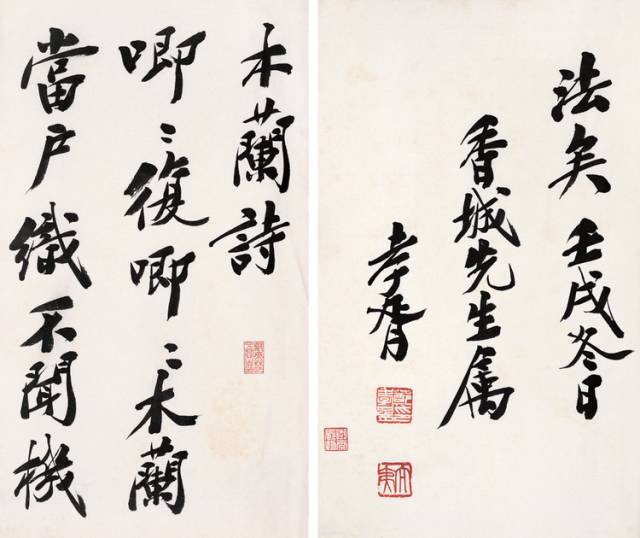 木蘭詩
唧〻復唧〻木蘭
當户織不聞機
法矣 壬戌冬日
香城先生属
孝胥